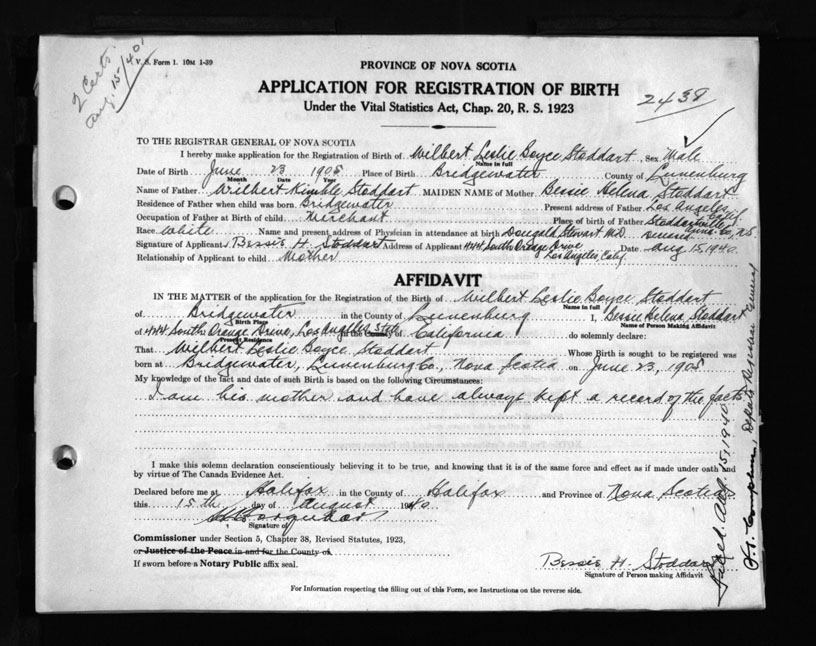 2 Certs.
Aug. 15/40
V. S. Form 1. 10M 1-39
PROVINCE OF NOVA SCOTIA
APPLICATION FOR REGISTRATION OF BIRTH
Under the Vital Statistics Act, Chap. 20, R. S. 1923
2438
TO THE REGISTRAR GENERAL OF NOVA SCOTIA
I hereby make application for the Registration of Birth of Wilbert Leslie Boyce Stoddart Sex Male
Name in full
Date of Birth June 23 1905 Place of Birth Bridgewater County of Lunenburg
Month Date Year
Name of Father Wilbert Kimble Stoddart MAIDEN NAME of Mother Bessie Helena Stoddart
Residence of Father when child was born Bridgewater Present address of Father Los Angeles, Calif.
Occupation of Father at Birth of child Merchant Place of birth of Father Stoddartville Anna. Co., N.S.
Race White Name and present address of Physician in attendance at birth Dougald Stewart M.D.
Signature of Applicant Bessie H. Stoddart Address of Applicant 444 South Orange Drive Date Aug 15, 1940
Los Angeles, Calif.
Relationship of Applicant to child Mother
AFFIDAVIT
IN THE MATTER of the application for the Registration of the Birth of Wilbert Leslie Boyce Stoddart
Name in full
of Bridgewater in the County of Lunenburg I, Bessie Helena Stoddart
Birth Place Name of Person Making Affidavit
of 444 South Orange Drive, Los Angeles State of California do solemnly declare:
Present Residence
That Wilbert Leslie Boyce Stoddart Whose Birth is sought to be registered was
born at Bridgewater, Lunenburg Co., Nova Scotia on June 23, 1905
My knowledge of the fact and date of such Birth is based on the following Circumstances:
I am his mother and have always kept a record of the facts
I make this solemn declaration conscientiously believing it to be true, and knowing that it is of the same force and effect as if made under oath and
by virtue of The Canada Evidence Act.
Declared before me at Halifax in the County of Halifax and Province of Nova Scotia
this 15th day of August 1940
Signature of
Commissioner under Section 5, Chapter 38, Revised Statutes, 1923,
or Justice of the Peace in and for the County of
If sworn before a Notary Public affix seal.
Bessie H. Stoddart
Signature of Person making Affidavit
For Information respecting the filling out of this Form, see Instructions on the reverse side.
Filed. Aug. 15, 1940
Deputy Registrar General